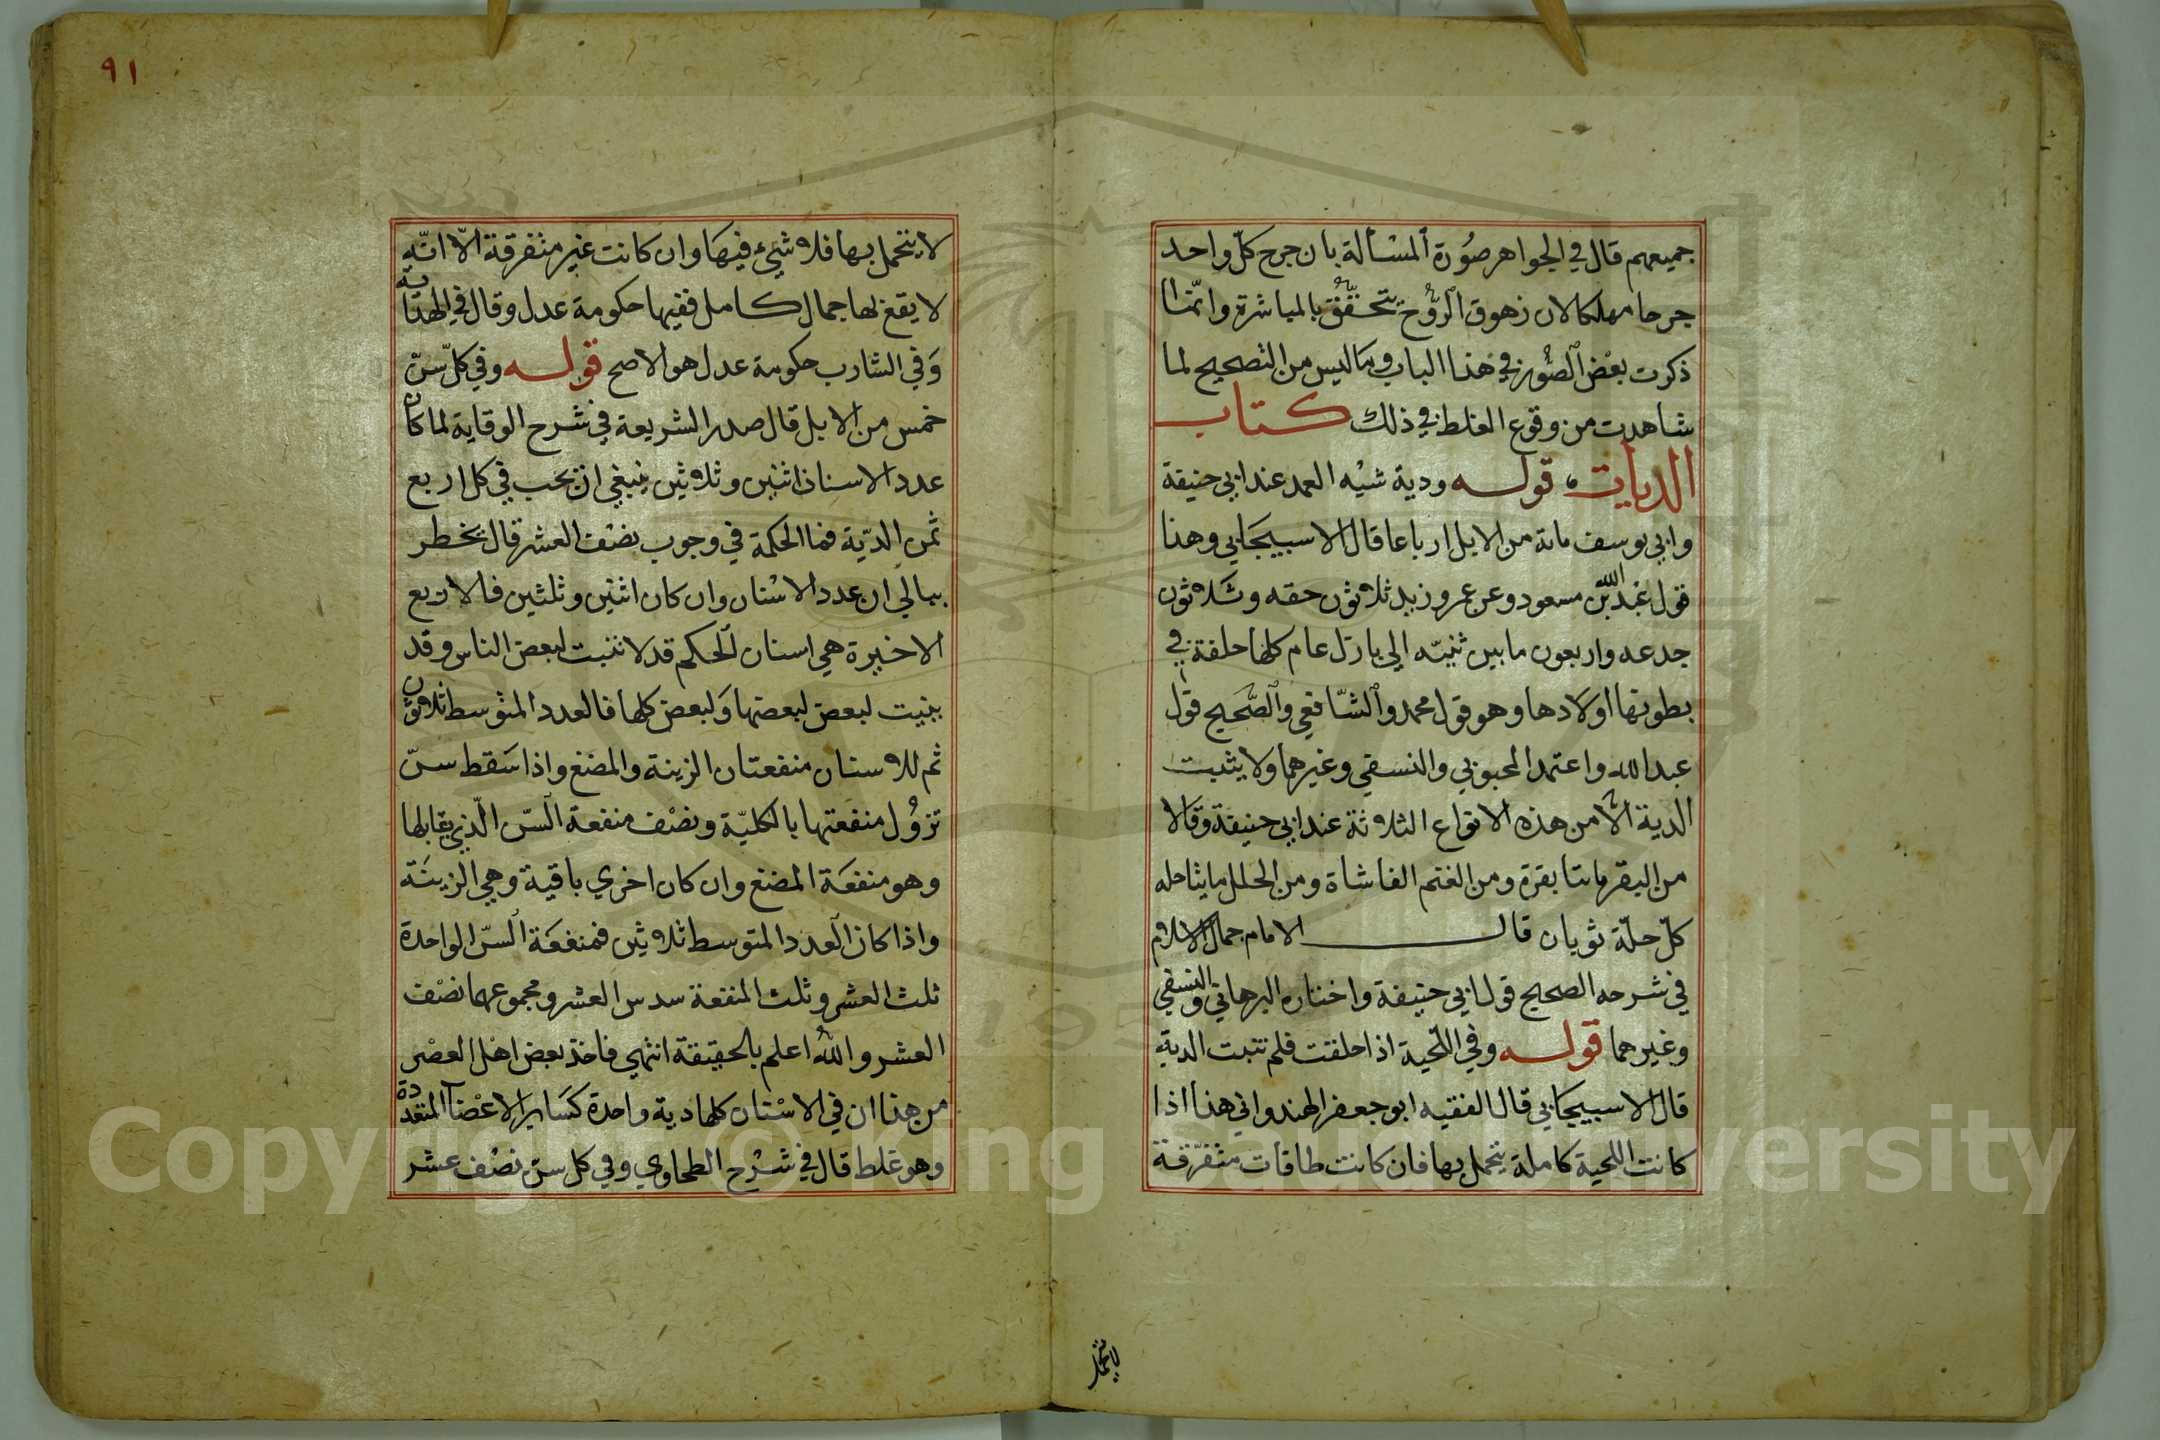 جميعهم قال في الجواهر صورة المسألة بان جرح كل واحد
جرحا مهلكا لان زهوق الروح يتحقق بالمباشرة وانما
ذكرت بعض الصور في هذا الباب وما ليس من التصحيح لما
شاهدت من وقوع الغلط في ذلك كتاب
الديات قوله ودية شبه العمد عند ابي حنيفة
وابي يوسف ماة من الابل ارباعا قال الاسبيجابي وهذا
قول عبد الله بن مسعود وعن عمر وزيد ثلاثون حقه وثلاثون
جدعه واربعون ما بين ثنيه الى بازل عام كلها حلفة في
بطونها اولادها وهو قول محمد والشافعي والصحيح قول
عبد الله واعتمد المحبوبي والنسفي وغيرهما ولا يثبت
الدية الا من هذه الانواع الثلاثة عند ابي حنيفة وقالا
من البقر ماىتا بقرة ومن الغنم الفا شاة ومن الحلل مايتا حله
كل حلة ثوبان قال الامام جمال الاسلام
في شرحه الصحيح قول ابي حنيفة واختاره البرهاني والنسفي
وغيرهما قوله وفي اللحية اذا حلقت فلم تنبت الدية
قال الاسبيجابي قال الفقيه ابو جعفر الهندواني هذا اذا
كانت اللحية كاملة يتجمل بها فان كانت طاقات متفرقة
لا يتجمل
٩١
لا يتجمل بها فلا شيء فيها وان كانت غير متفرقة الا انه
لا يقع لها جمال كامل ففيها حكومة عدل وقال في الهداية
وفي الشارب حكومة عدل هو الاصح قوله وفي كل سن
خمس من الابل قال صدر الشريعة في شرح الوقاية لما كان
عدد الاسنان اثنين وثلاثين ينبغي ان يجب في كل اربع
ثمن الدية فما الحكمة في وجوب نصف العشر قال يخطر
ببالي ان عدد الاسنان وان كان اثنين وثلثين فالاربع
الاخيرة هي اسنان الحكم قد لا تنبت لبعض الناس وقد
ينبت لبعض لبعضها ولبعض كلها فالعدد المتوسط ثلاثون
ثم للاسنان منفعتان الزينة والمضغ واذا سقط سن
تزول منفعتها بالكلية ونصف منفعة السن الذي يقابلها
وهو منفعة المضغ وان كان اخري باقية وهي الزينة
واذا كان العدد المتوسط ثلاثين فمنفعة السن الواحدة
ثلث العشر وثلث المنفعة سدس العشر ومجموعهما نصف
العشر والله اعلم بالحقيقة انتهي فاخذ بعض اهل العصر
من هذا ان في الاسنان كلها دية واحدة كساير الاعضآ المتعددة
وهو غلط قال في شرح الطحاوي وفي كل سن نصف عشر
Copyright © King Saud University